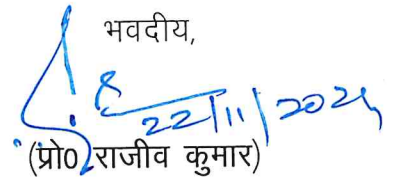 भवदीय,
22/11/2024
(प्रो0 राजीव कुमार)